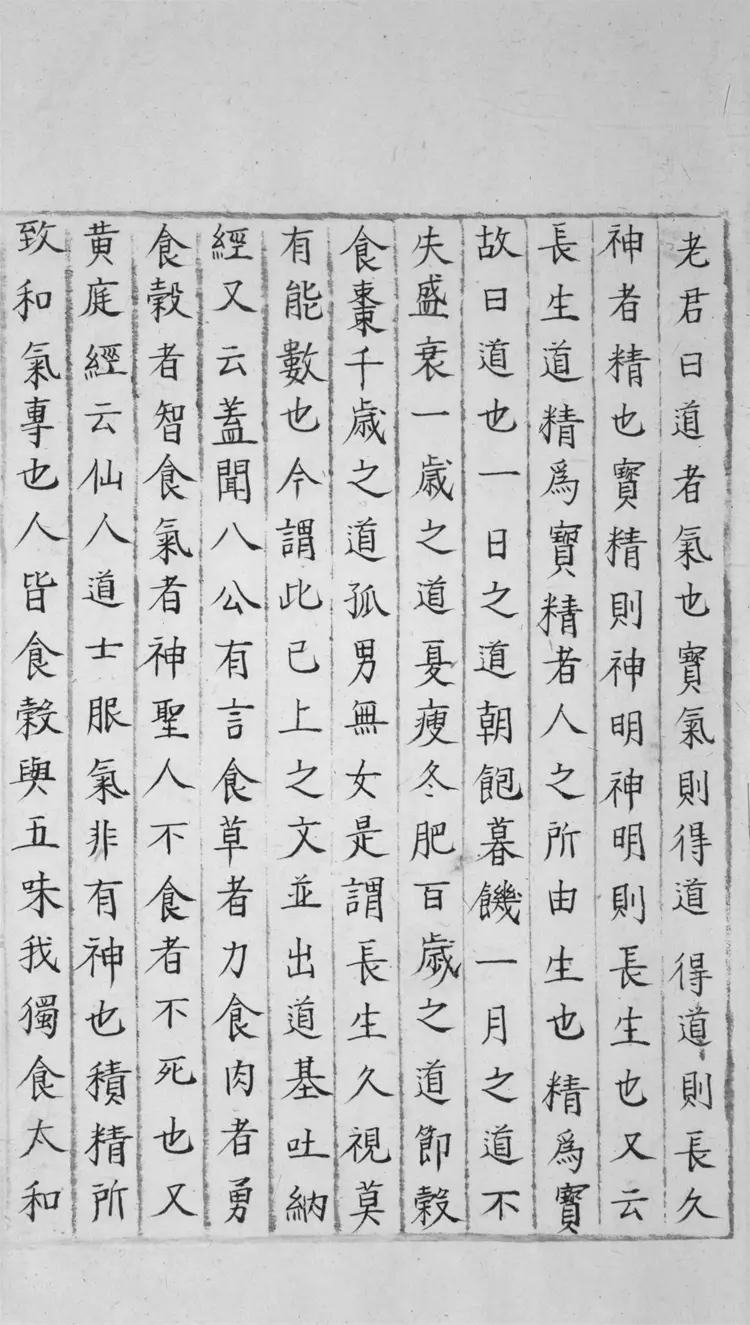 老君曰道者氣也寶氣則得道得道則長久
神者精也寶精則神明神明則長生也又云
長生道精爲寶精者人之所由生也精爲寶
故曰道也一日之道朝飽暮饑一月之道不
失盛衰一歲之道夏瘦冬肥百歲之道節穀
食棗千歲之道孤男無女是謂長生久視莫
有能數也今謂此已上之文並出道基吐納
經又云蓋聞八公有言食草者力食肉者勇
食穀者智食氣者神聖人不食者不死也又
黃庭經云仙人道士服氣非有神也積精所
致和氣專也人皆食穀與五味我獨食太和